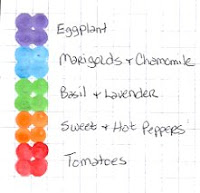 Eggplant
Marigolds + Chamomile
Basil + Lavender
Sweet + Hot Peppers
Tomatoes